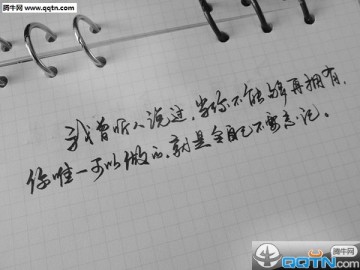 腾牛网
www.qqtn.com
我曾听人说过,当你不能够再拥有,
你唯一可以做的,就是令自己不要忘记。
腾牛网
QQTN.COM